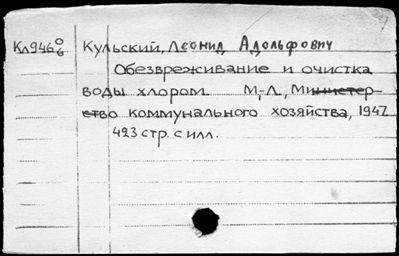 Кл946 о/б Кульский, Леонид Адольфович
Обезвреживание и очистка
воды хлором. М.-Л., Министер-
ство коммунального хозяйства, 1947.
423 стр. с илл.